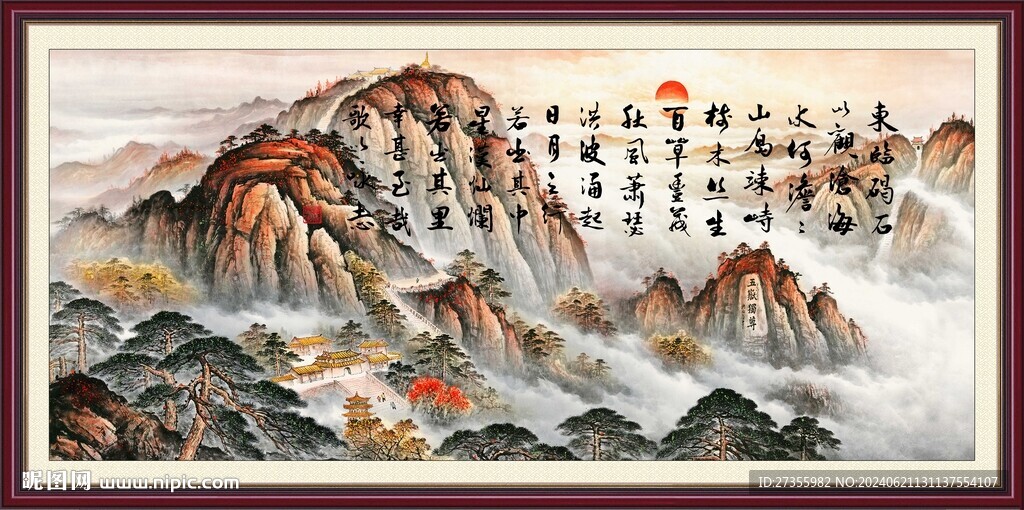 東臨碣石
以觀滄海
水何澹々
山島竦峙
樹木丛生
百草豐茂
秋風蕭瑟
洪波涌起
日月之行
若出其中
星漢燦爛
若出其里
幸甚至哉
歌以咏志
五嶽獨尊
昵图网 www.nipic.com
ID:27355982 NO:20240621131137554107